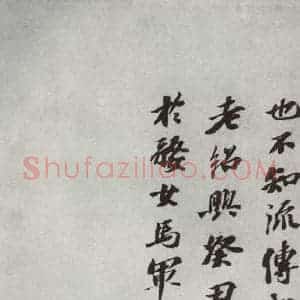 也不知流傳
老紹興癸丑
於騐女馬軍
Shufaziliao.COM